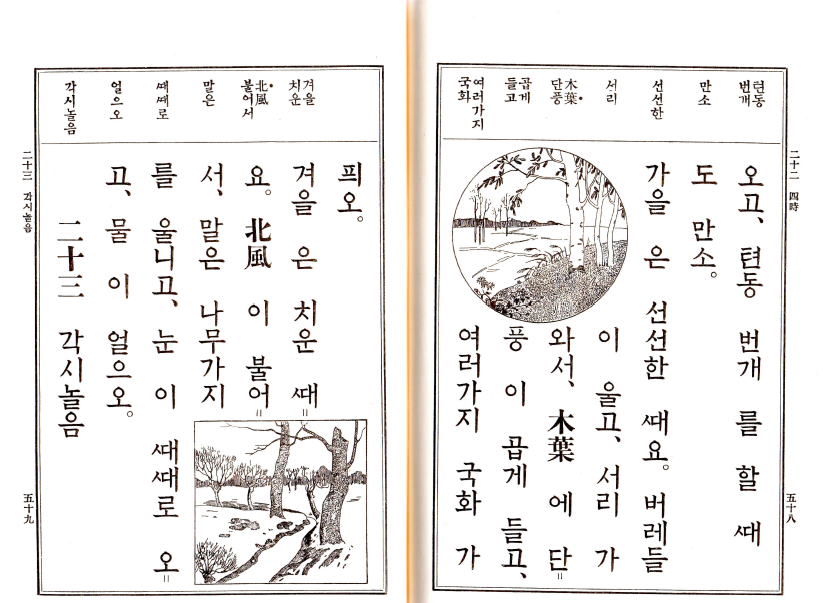 二十二 四時
五十八
텬동
번개
만소
선선한
서리
木葉·
단풍
곱게
들고
여러가지
국화
오고、텬동 번개 를 할 ᄯᅢ
도 만소。
가을 은 선선한 ᄯᅢ요。버레들
이 울고、서리 가
와서、木葉 에 단=
풍 이 곱게 들고、
여러가지 국화 가
겨을
치운
北·風
불어서
말은
ᄯᅢᄯᅢ로
얼으오
각시놀음
피오。
겨을 은 치운 ᄯᅢ=
요。北風 이 불어=
서、말은 나무가지
를 울니고、눈 이 ᄯᅢᄯᅢ로 오=
고、물 이 얼으오。
二十三 각시놀음
二十三 각시놀음
五十九